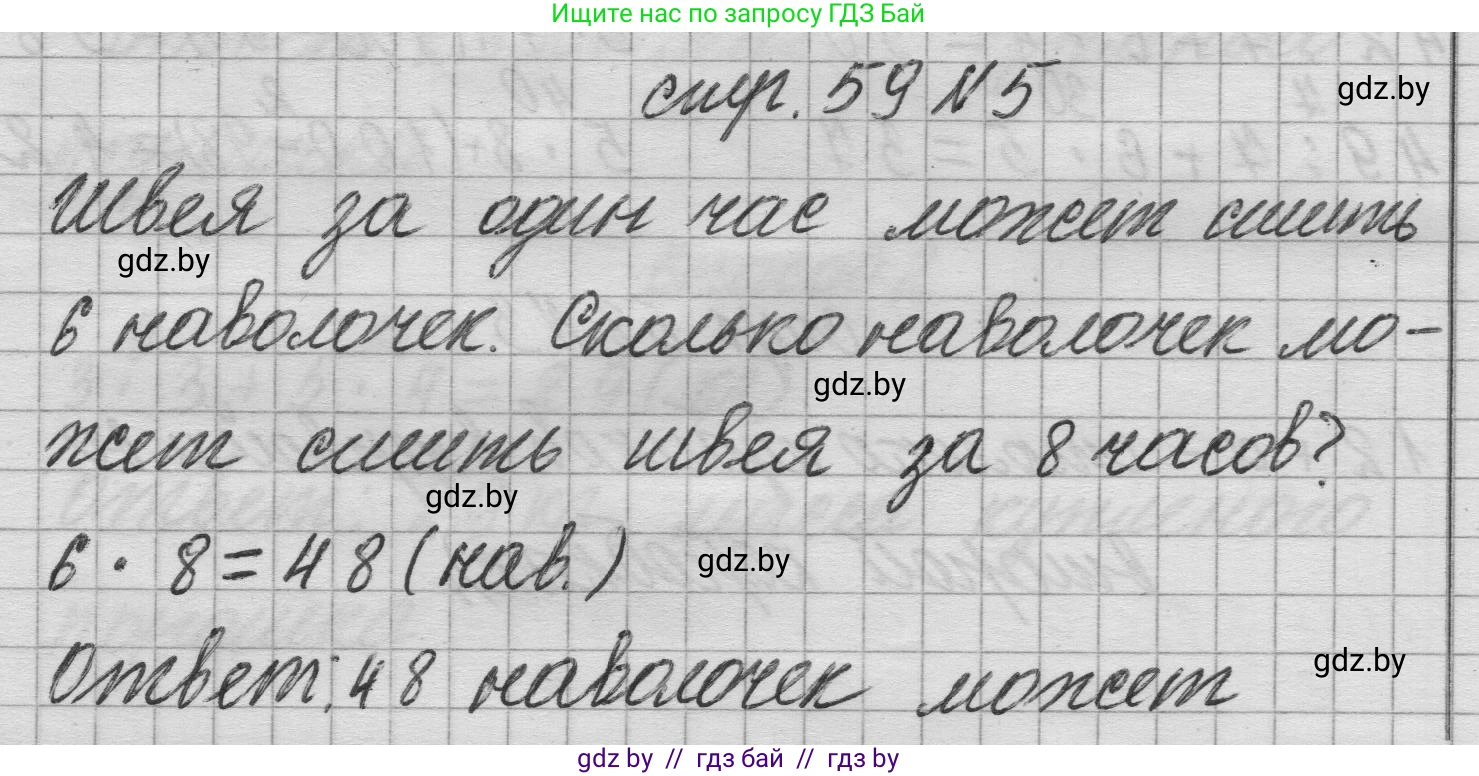 Ищите нас по запросу ГДЗ Бай
стр. 59 N 5
gdz.by
Швея за один час может сшить
gdz.by
6 наволочек. Сколько наволочек мо-
gdz.by
жет сшить швея за 8 часов?
gdz.by
6 · 8 = 48 (нав.)
gdz.by
Ответ: 48 наволочек может
gdz.by
gdz by // гдз бай // гдз by